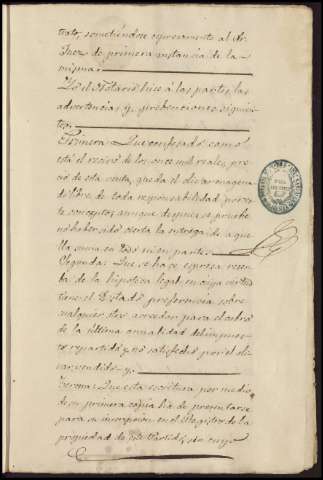 trato, sometiéndose espresamente al Sr.
Juez de primera instancia de la
misma.
Yo el Notario hice á las partes, las
advertencias y prebenciones siguien-
tes.
Primera: Que confesado como
está el recivo de los once mil reales, pre-
cio de esta venta, queda el olivar enagena-
do libre, de toda responsabilidad por es-
te concepto, aunque despues se pruebe
no haber sido cierta la entrega de aque-
lla suma en todo ni en parte.
Segunda: Que se hace espresa reser-
ba de la hipoteca legal en cuya virtud
tiene el Estado preferencia sobre
cualquier otro acreedor para el cobro
de la última anualidad del impues-
to repartido y no satisfecho por el oli-
var vendido y
Tercera: Que esta escritura por medio
de su primera copia ha de presentarse
para su inscripcion en el Registro de la
propiedad de este Partido, sin cuyo